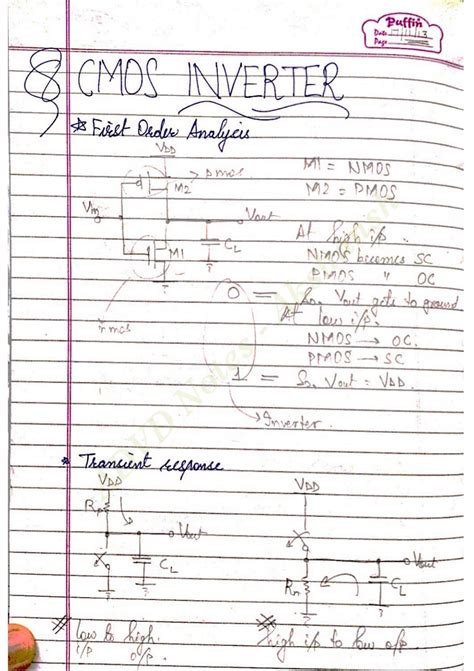 Puffin
Date 17/11/13
Page
CMOS INVERTER
* First Order Analysis
VDD
pmos
M2
Vin
Vout
M1
CL
nmos
M1 = NMOS
M2 = PMOS
At high i/p
NMOS becomes SC
PMOS " OC
0 = So, Vout gets to ground
At low i/p.
NMOS → OC.
PMOS → SC
1 = So, Vout = VDD.
→ Inverter.
* Transient response
VDD
Rp
Vout
CL
VDD
Vout
Rn
CL
low to high.
i/p o/p.
high i/p to low o/p.